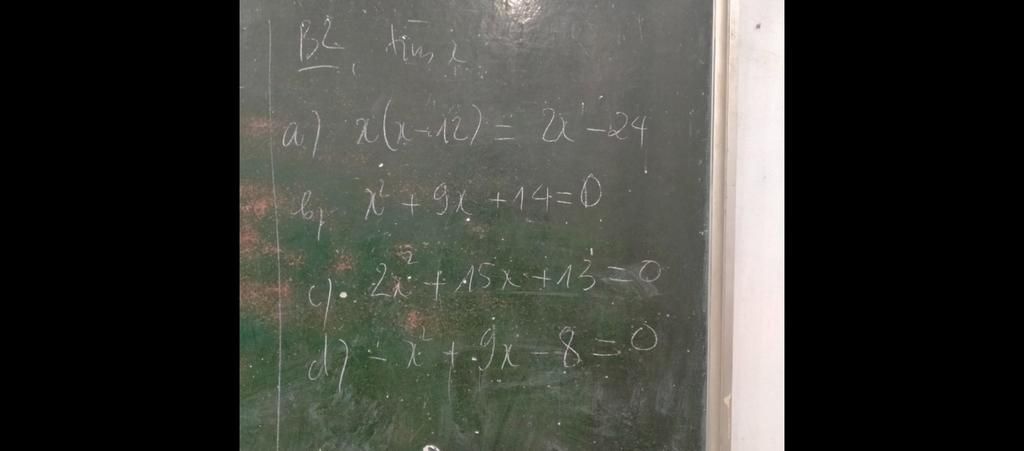 B2, tìm x
a) x(x-12) = 2x - 24
b, x² + 9x + 14 = 0
c) 2x² + 15x + 13 = 0
d) - x² + 9x - 8 = 0